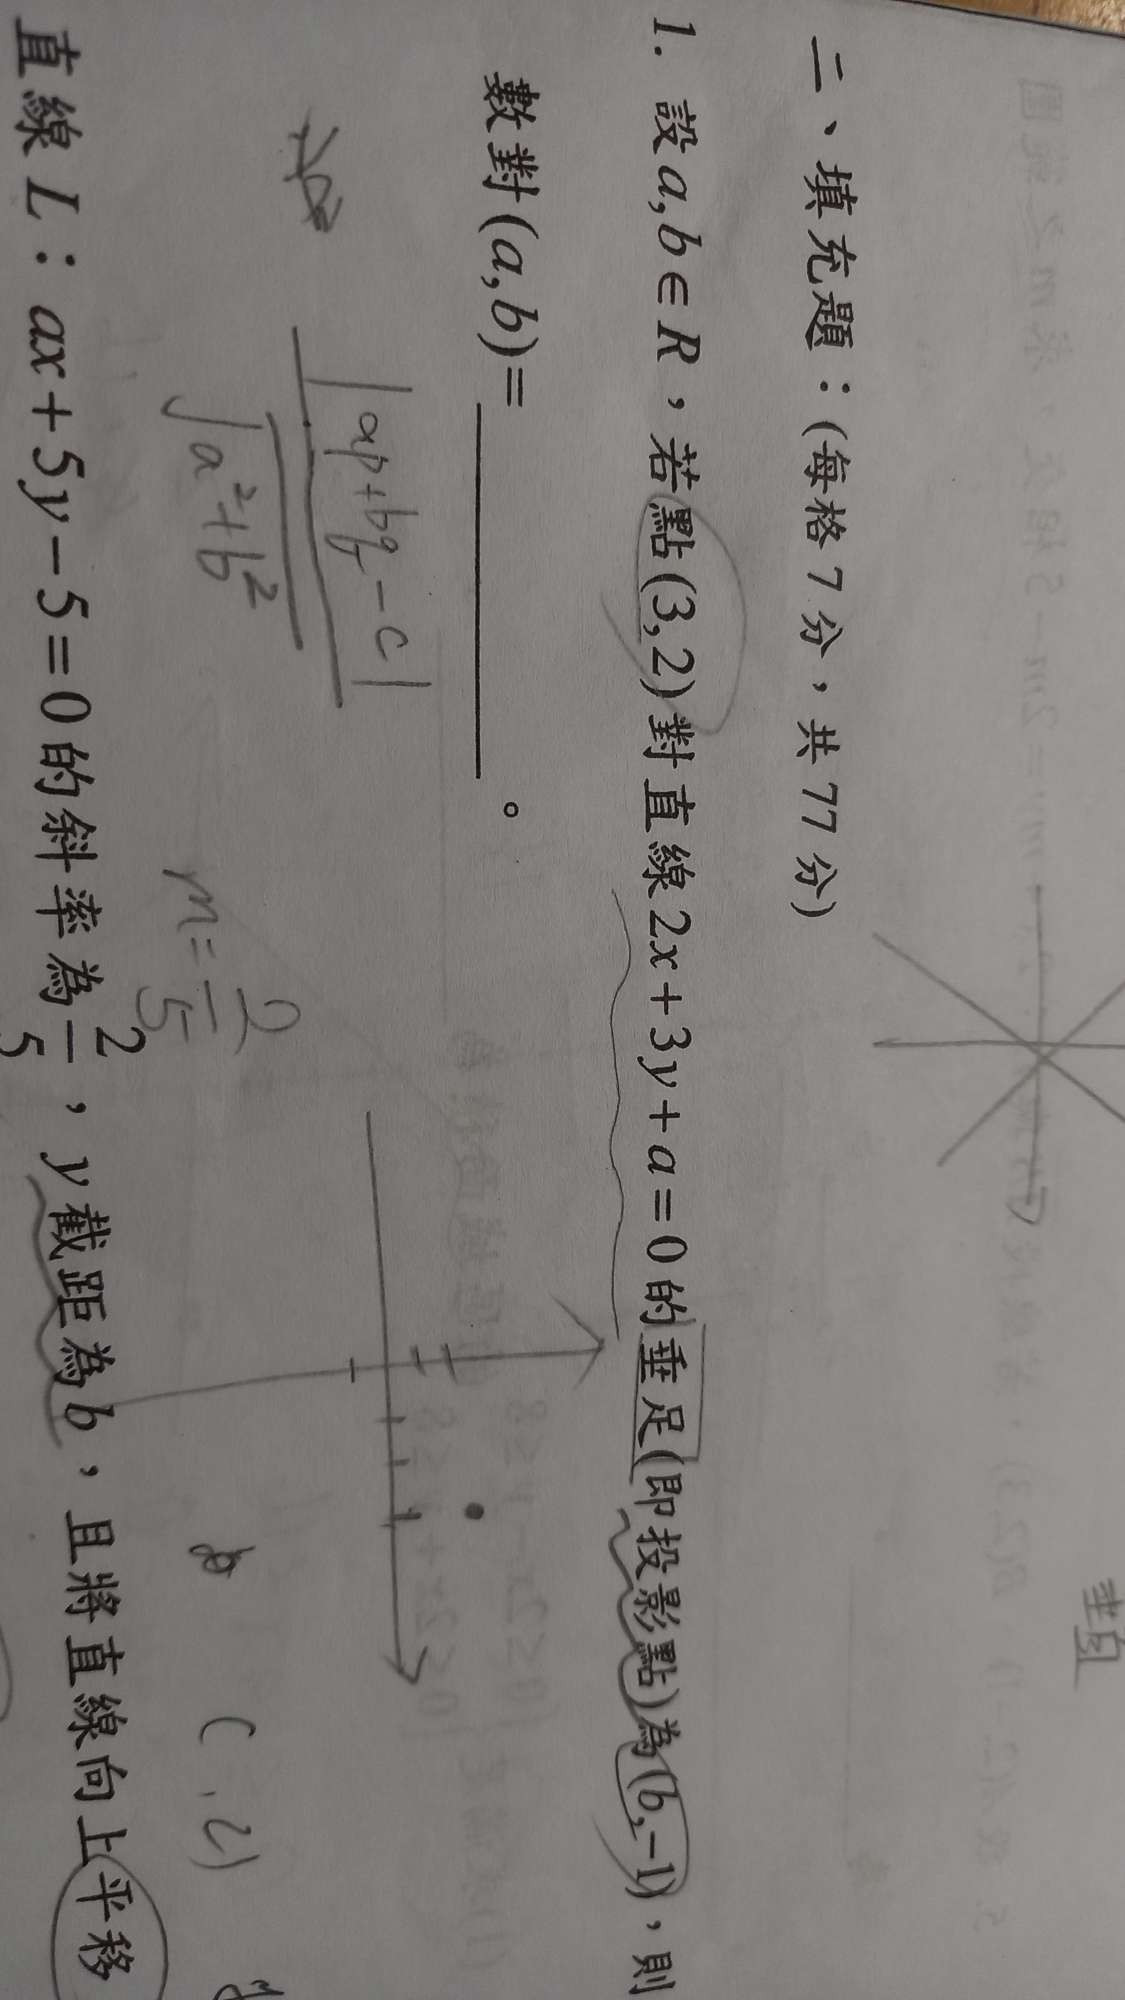 二、填充題：(每格7分，共77分)
1. 設a,b∈R，若點(3,2)對直線2x+3y+a=0的垂足(即投影點)為(b,-1)，則
數對(a,b)=________。
|ap+bq-c|
√a²+b²
m=2/5
直線L：ax+5y-5=0的斜率為2/5，y截距為b，且將直線向上平移